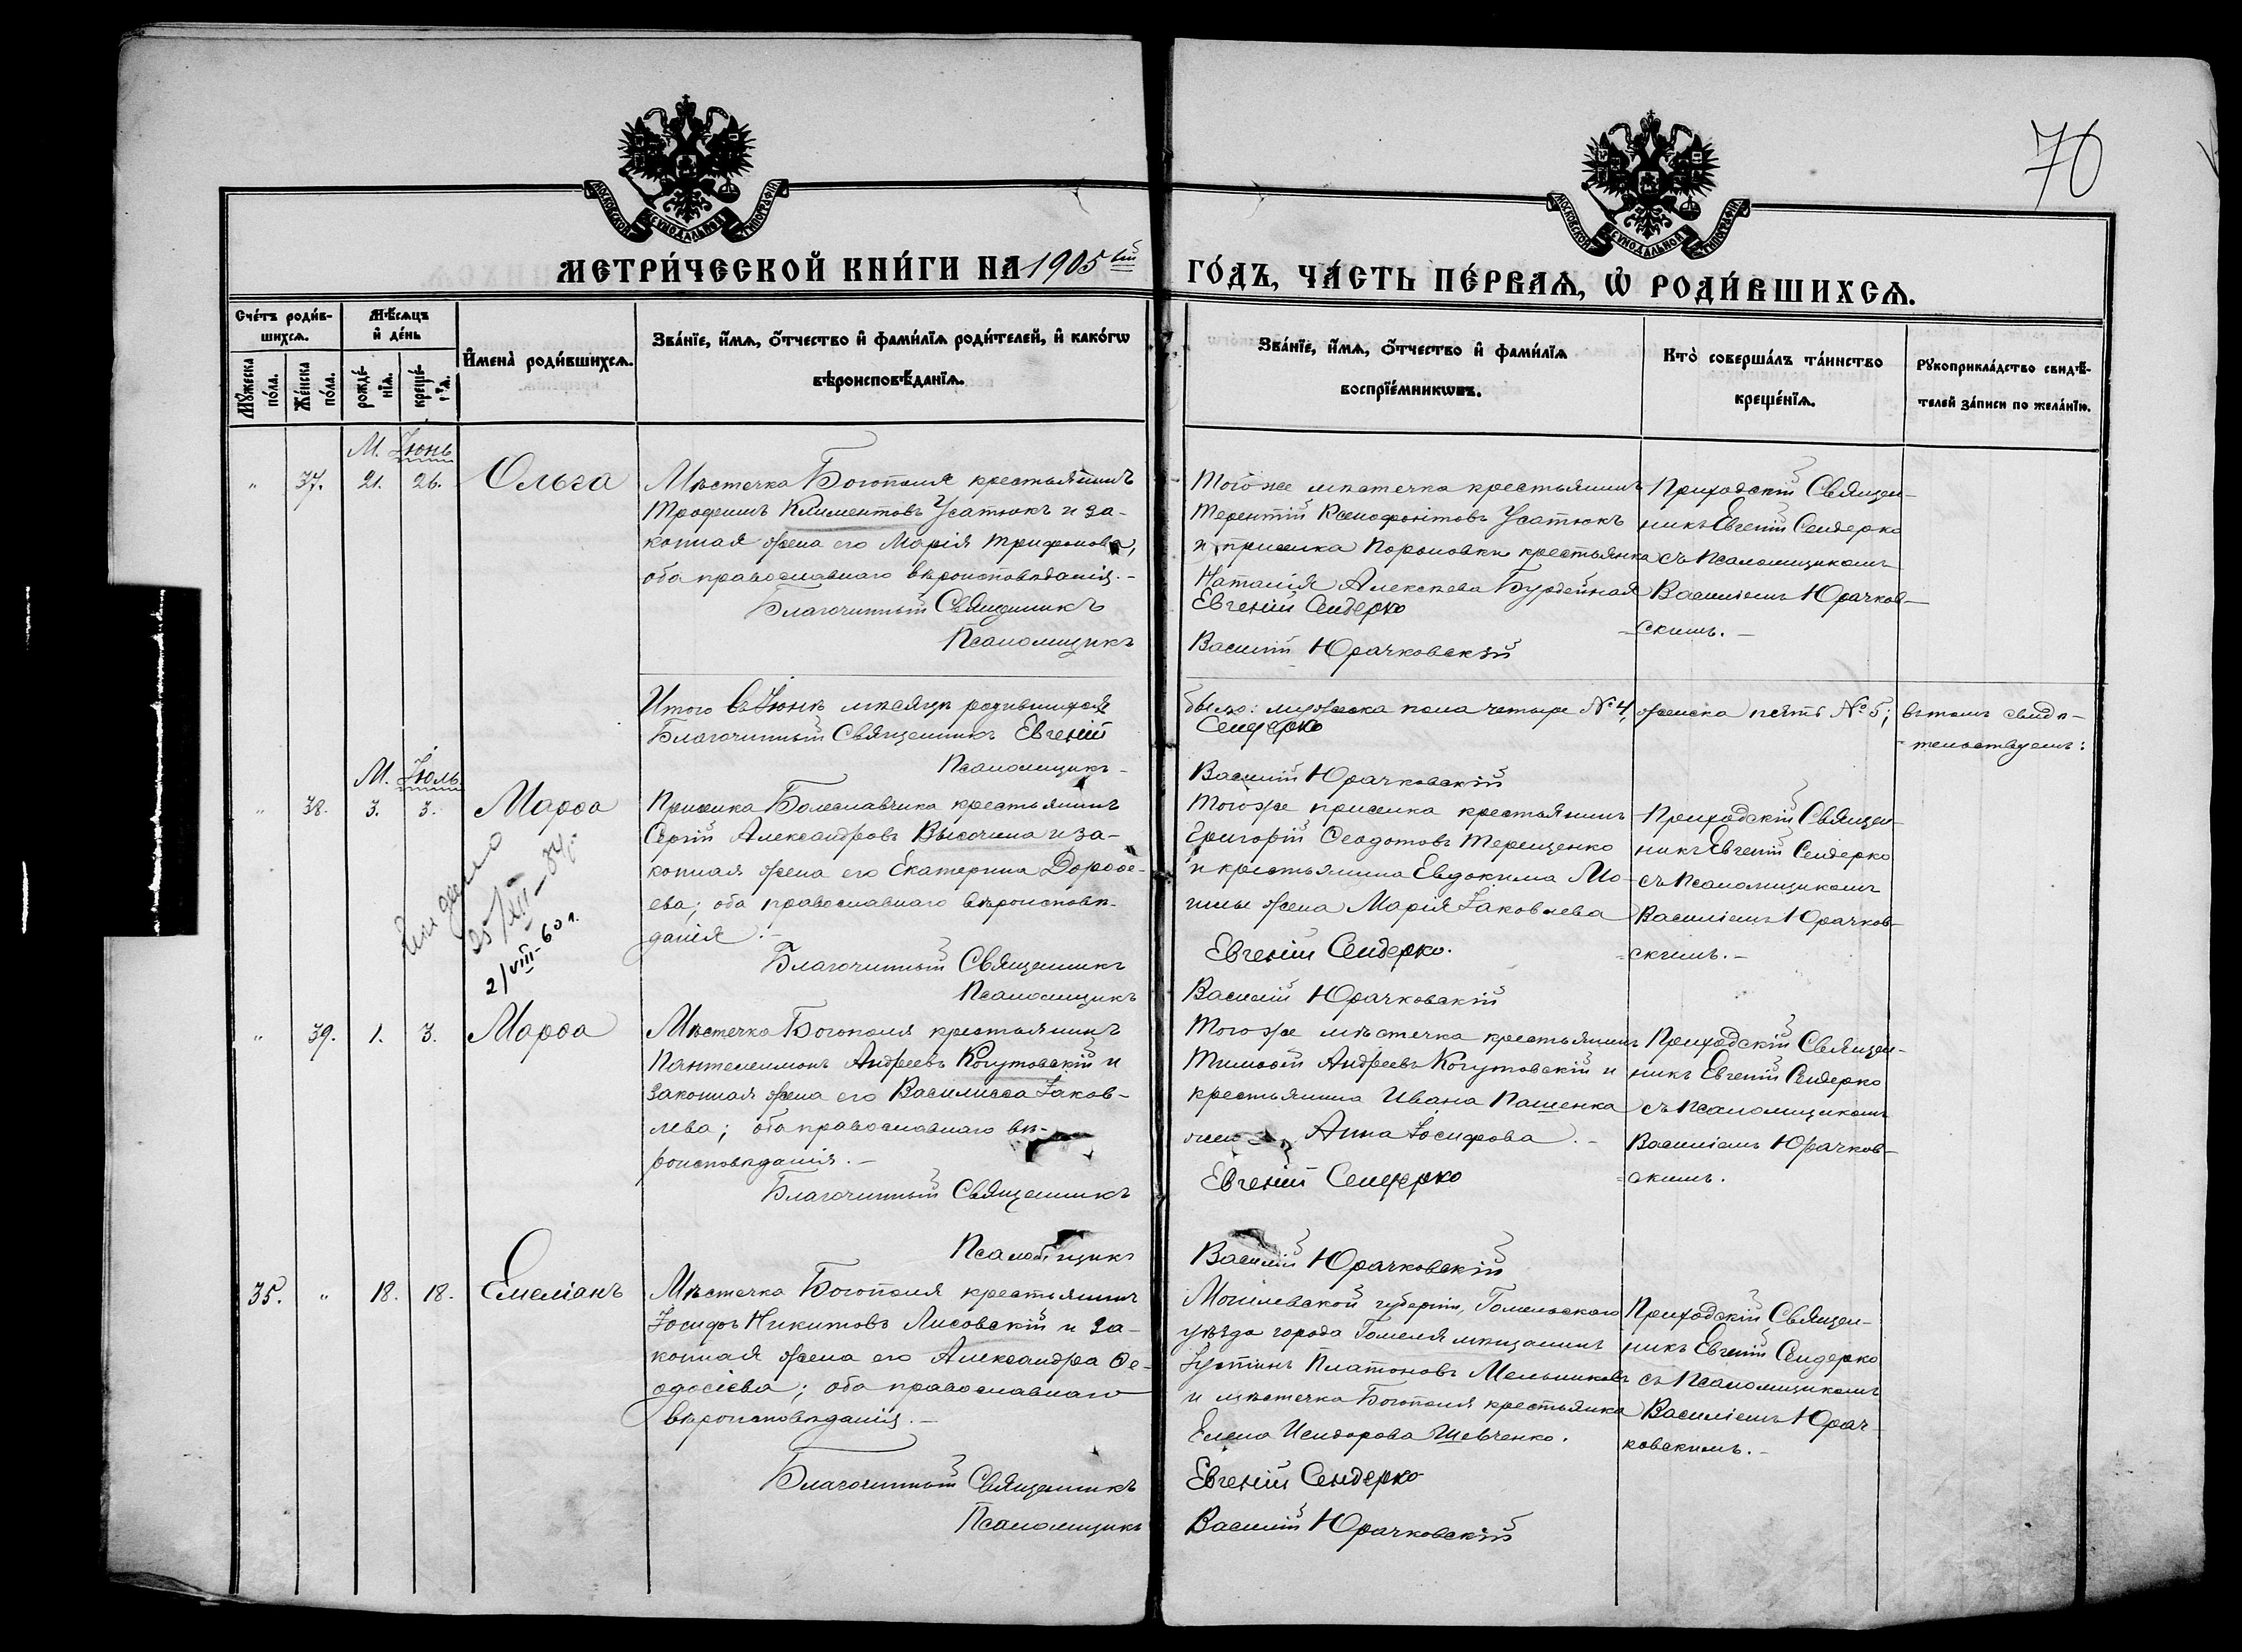 70
МОСКОВСКОЙ СѴНОДАЛЬНОЙ ТИПОГРАФІИ
МОСКОВСКОЙ СѴНОДАЛЬНОЙ ТИПОГРАФІИ
МЕТРИ́ЧЕСКОЙ КНИ́ГИ НА 1905 ый ГО́ДЪ, ЧА́СТЬ ПЕ́РВАѦ, Ѡ РОДИ́ВШИХСѦ.
Сче́тъ роди́в-
шихсѧ.
Мꙋ́жеска
по́ла.
Же́нска
по́ла.
Мѣ́сѧцъ
и҆ де́нь
рожде́-
нїѧ.
креще́-
нїѧ.
И҆мена̀ роди́вшихсѧ.
Зва́нїе, и҆́мѧ, ѻ҆́тчество и҆ фами́лїѧ роди́телей, и҆ како́гѡ
вѣроисповѣ́данїѧ.
Зва́нїе, и҆́мѧ, ѻ҆́тчество и҆ фами́лїѧ
воспрїе́мникѡвъ.
Кто̀ соверша́лъ та́инство
креще́нїѧ.
Рꙋкоприкла́дство свидѣ́-
телей за́писи по жела́нїю.
М. Іюнь
" 37. 21. 26. Ольга
Мѣстечка Богополя крестьянинъ
Трофимъ Климентовъ Усатюкъ и за-
конная жена его Марія Трифонова,
оба православнаго вѣроисповѣданія. -
Благочинный Священникъ
Псаломщикъ
Тогоже мѣстечка крестьянинъ
Терентій Ксенофонтовъ Усатюкъ
и приселка Пороновки крестьянка
Наталія Алексѣева Бурдейная
Евгеній Сендерко
Василій Юрачковскій
Приходскій Священ-
никъ Евгеній Сендерко
съ Псаломщикомъ
Василіемъ Юрачков-
скимъ. -
Итого въ Іюнѣ мѣсяцѣ родившихся было: мужеска пола четыре №4, женска пять №5; въ томъ свидѣ-
тельствуемъ:
Благочинный Священникъ Евгеній Сендерко
Псаломщикъ Василій Юрачковскій
М. Іюль
" 38. 3. 3. Марѳа
25/XII-34.
2/VIII-60 г.
Приселка Болеславчика крестьянинъ
Сергій Александровъ Высочина и за-
конная жена его Екатерина Дороѳе-
ева; оба православнаго вѣроисповѣ-
данія. -
Благочинный Священникъ
Псаломщикъ
Тогоже приселка крестьянинъ
Григорій Ѳеодотовъ Терещенко
и крестьянина Евдокима Мо-
гилы жена Марія Іаковлева
Евгеній Сендерко.
Василій Юрачковскій
Приходскій Священ-
никъ Евгеній Сендерко
съ Псаломщикомъ
Василіемъ Юрачков-
скимъ. -
" 39. 1. 3. Марѳа
Мѣстечка Богополя крестьянинъ
Пантелеимонъ Андреевъ Когутовскій и
законная жена его Василисса Іаков-
лева; оба православнаго вѣ-
роисповѣданія. -
Благочинный Священникъ
Псаломщикъ
Тогоже мѣстечка крестьянинъ
Тимоѳей Андреевъ Когутовскій и
крестьянина Ивана Пашенка
жена Анна Іосифова. -
Евгеній Сендерко
Василій Юрачковскій
Приходскій Священ-
никъ Евгеній Сендерко
съ Псаломщикомъ
Василіемъ Юрачков-
скимъ.
35. " 18. 18. Емеліанъ
Мѣстечка Богополя крестьянинъ
Іосифъ Никитовъ Лисовскій и за-
конная жена его Александра Ѳе-
одосіева; оба православнаго
вѣроисповѣданія. -
Благочинный Священникъ
Псаломщикъ
Могилевской губерніи, Гомельскаго
уѣзда города Гомеля мѣщанинъ
Іустинъ Платоновъ Мельниковъ
и мѣстечка Богополя крестьянка
Елена Исидорова Шевченко.
Евгеній Сендерко
Василій Юрачковскій
Приходскій Священ-
никъ Евгеній Сендерко
съ Псаломщикомъ
Василіемъ Юрач-
ковскимъ. -